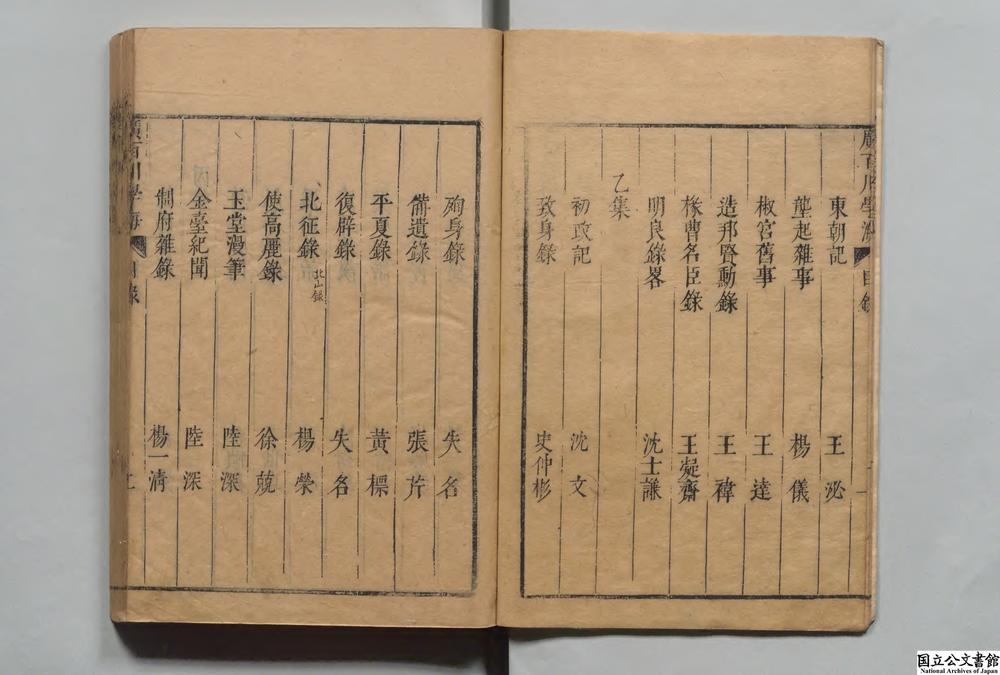 廣百川學海 目錄
東朝記 王泌
壟起雜事 楊儀
椒宮舊事 王達
造邦賢勳錄 王禕
掾曹名臣錄 王凝齋
明良錄畧 沈士謙
乙集
初政記 沈文
致身錄 史仲彬
殉身錄 失名
備遺錄 張芹
平夏錄 黃標
復辟錄 失名
北征錄 北山錄 楊榮
使高麗錄 徐兢
玉堂漫筆 陸深
金臺紀聞 陸深
制府雜錄 楊一清
廣百川學海 目錄
国立公文書館
National Archives of Japan